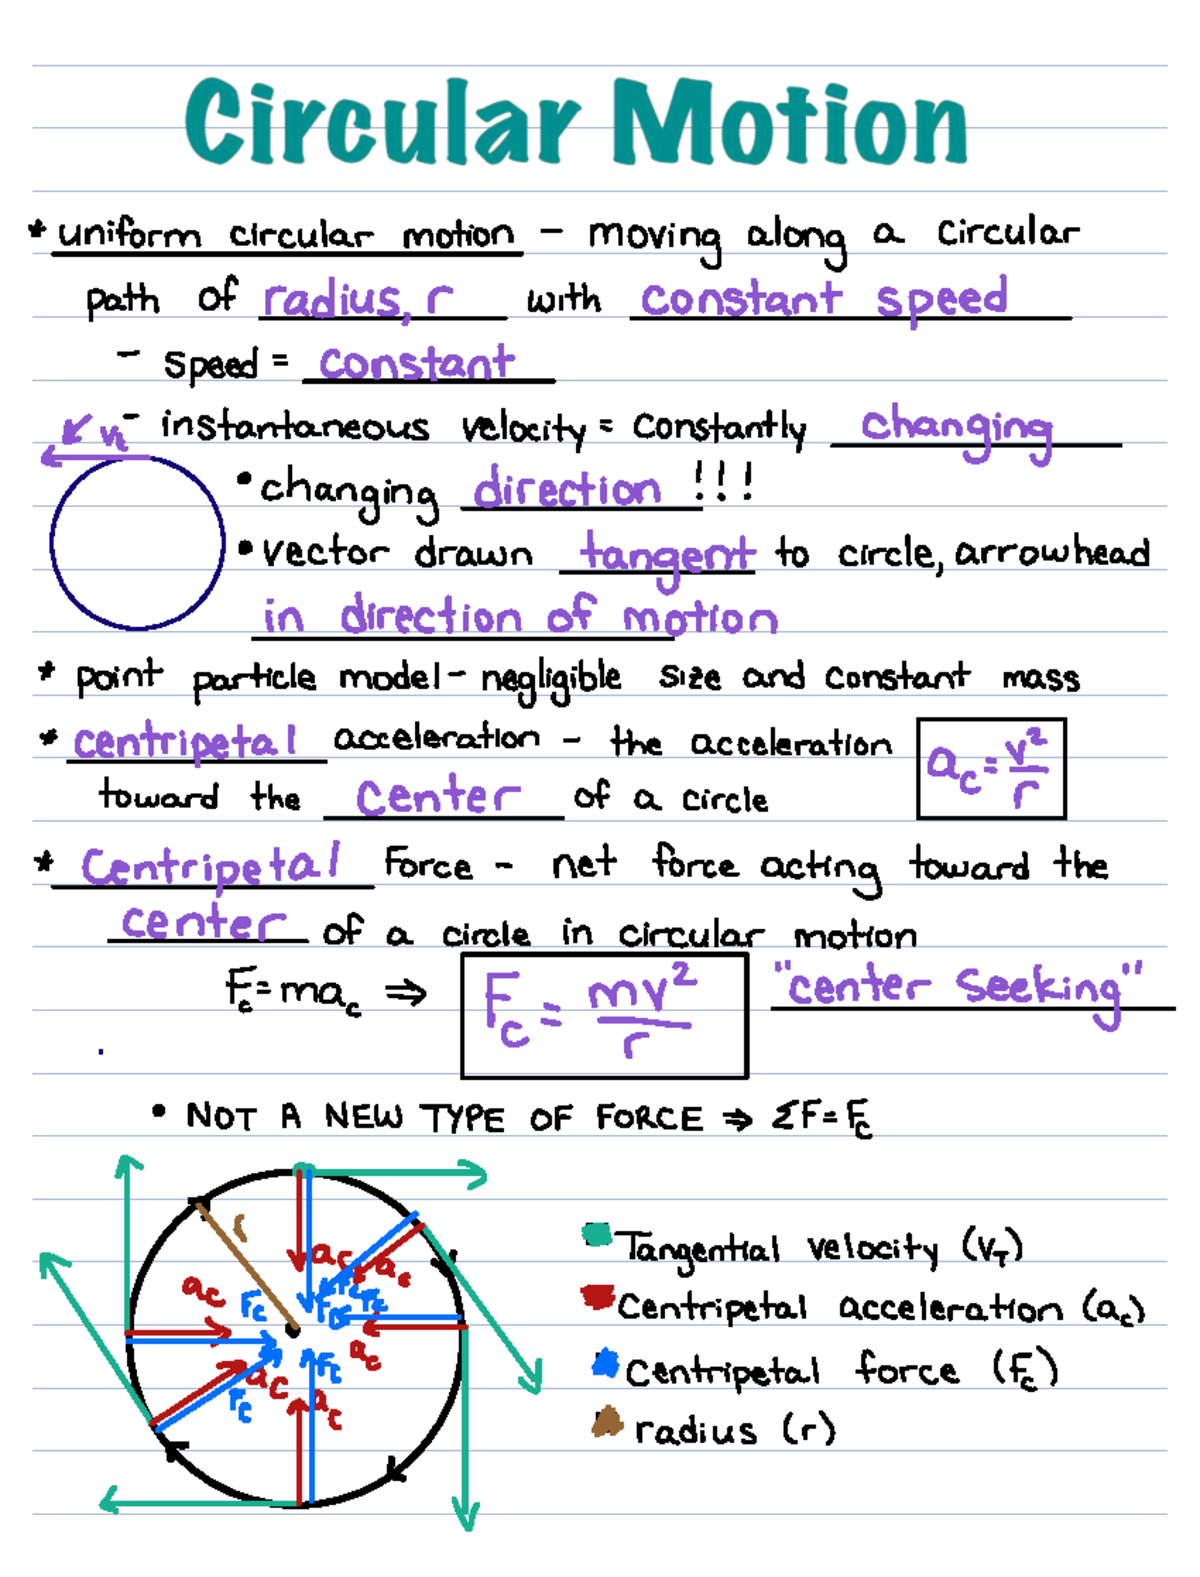 Circular Motion
* uniform circular motion - moving along a circular
path of radius, r with constant speed
- speed = constant
- instantaneous velocity = constantly changing
• changing direction !!!
• vector drawn tangent to circle, arrowhead
in direction of motion
* point particle model - negligible size and constant mass
* centripetal acceleration - the acceleration
toward the center of a circle
a_c = v²/r
* Centripetal Force - net force acting toward the
center of a circle in circular motion
F_c = ma_c ⇒ F_c = mv²/r "center seeking"
• NOT A NEW TYPE OF FORCE ⇒ ΣF = F_c
r
a_c
a_c
a_c
F_c
F_c
F_c
a_c
F_c
a_c
F_c
a_c
Tangential velocity (v_T)
Centripetal acceleration (a_c)
Centripetal force (F_c)
radius (r)